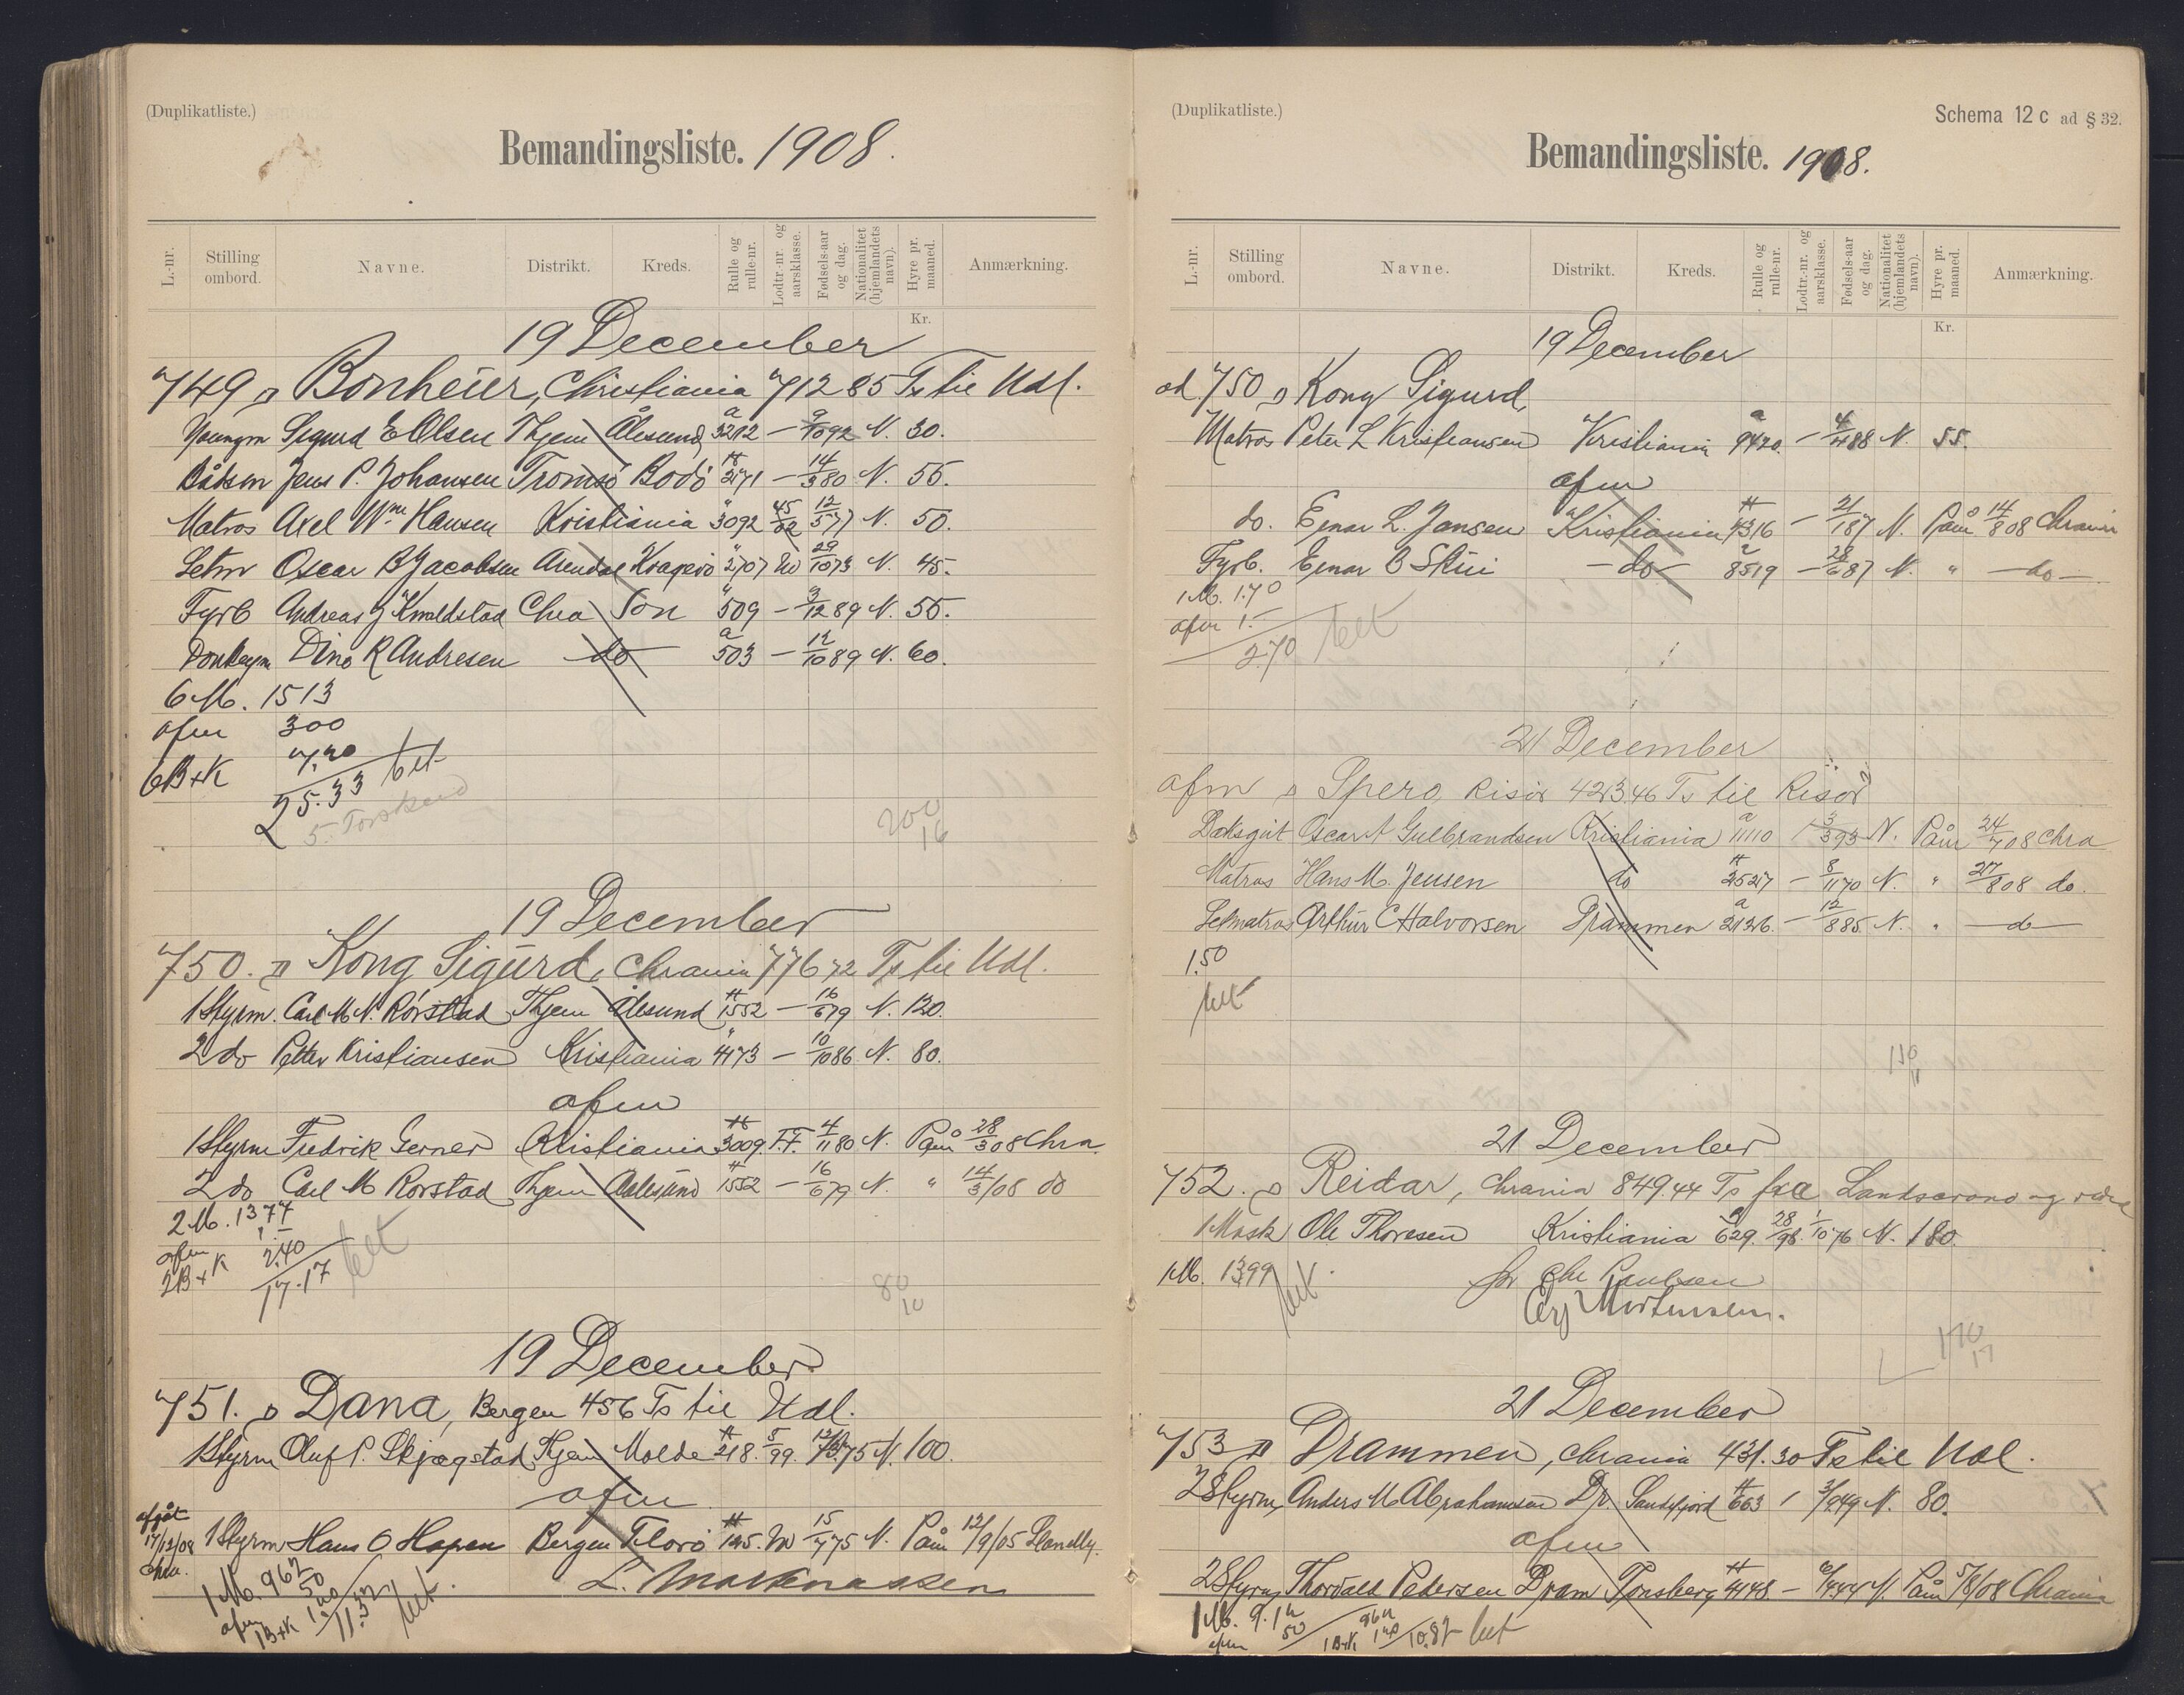 (Duplikatliste.)
Bemandingsliste. 1908.
L.-nr. Stilling ombord. Navne. Distrikt. Kreds. Rulle og rulle-nr. Lodtr.-nr. og aarsklasse. Fødsels-aar og dag. Nationalitet (hjemlandets navn). Hyre pr. maaned. Anmærkning.
Kr.
19 December
749 Bonheur, Christiania 71285 Ts til Udl.
Youngm Sigurd E Olsen Thjem Ålesund a 3212 — 9/10 92 N. 30.
Bådsm Jens P. Johansen Tromsö Bodö 2171 — 14/3 80 N. 55.
Matros Axel Wm Hansen Kristiania " 3092 45/02 12/5 77 N. 50.
Letm Oscar B Jacobsen Arendal Kragerö " 2707 29/10 73 N. 45.
Fyrb Andreas J Knaldstad Chra Son " 509 — 3/12 89 N. 55.
Donkeym Dino R Andresen do a 503 — 12/10 89 N. 60.
6 M. 1513
afm 300
6B+K 7.20
25.33 bet
5. Torskend
200
16
19 December
750. Kong Sigurd, Chrania 776,72 Ts til Udl.
1 Styrm. Carl M. N. Rörstad Thjem Ålesund 1552 — 16/6 79 N. 120.
2 do Petter Kristiansen Kristiania " 4173 — 10/10 86 N. 80.
afm
1 Styrm Fredrik Gerner Kristiania 3009 F.F. 4/11 80 N. Påm 28/3 08 Chra.
2 do Carl M Rorstad Thjem Aalesund 1552 — 16/6 79 N. " 14/3/08 do
2 M. 1377
afm 1.—
2B+K 2.40
17.17 bet
80
10
19 December
751. Dana, Bergen 456 Ts til Udl.
1 Styrm Oluf P. Skjægstad Thjem Molde 218. 5/99. 75 N. 100.
afm
afgåt 17/12/08 Chra. 1 Styrm Hans O Hopen Bergen Florö 125. 15/7 75 N. Påm 12/9/05 Llanelly.
1 M. 962
afm 50
1B+K 1.20
11.32 bet.
(Duplikatliste.) Schema 12 c ad § 32.
Bemandingsliste. 1908.
L.-nr. Stilling ombord. Navne. Distrikt. Kreds. Rulle og rulle-nr. Lodtr.-nr. og aarsklasse. Fødsels-aar og dag. Nationalitet (hjemlandets navn). Hyre pr. maaned. Anmærkning.
Kr.
19 December
ad 750 Kong Sigurd,
Matros Peter L Kristiansen Kristiania a 9420. — 4/4 88 N. 55.
afm
do. Einar L. Jansen Kristiania 4316 — 21/1 87 N. Påm 14/8 08 Chrania
Fyrb. Einar B Skui — do — a 8519 — 28/6 87 N. " — do —
1 M. 1.70
afm 1.—
2.70 bet
21 December
afm Spero, Risör 423.46 Ts til Risör
Daksgut Oscar A Gulbrandsen Kristiania a 11110 3/3 93 N. Påm 24/7 08 Chra
Matros Hans M. Jensen do 2527 — 8/11 70 N. " 27/8 08 do.
Letmatros Arthur C Halvorsen Drammen a 2126. — 12/8 85 N. " — do —
1.50
bet
110
11
21 December
752. Reidar, Chrania 849.44 Ts fra Landscrona og
1 Mask Ole Thoresen Kristiania 629. 28/98. 1/10 76 N. 180.
1 M. 1399 bet.
170
17
21 December
753 Drammen, Chrania 431.30 Ts til Udl.
2 Styrm, Anders M Abrahamsen Dr. Sandefjord 663 N. 80.
afm
2 Styrm, Thorvald Pedersen Dram Tönsberg 4148. — N. Påm 5/8/08 Chrania
1 M. 9.12
afm 50
962
1B+K 1.20
10.82 bet